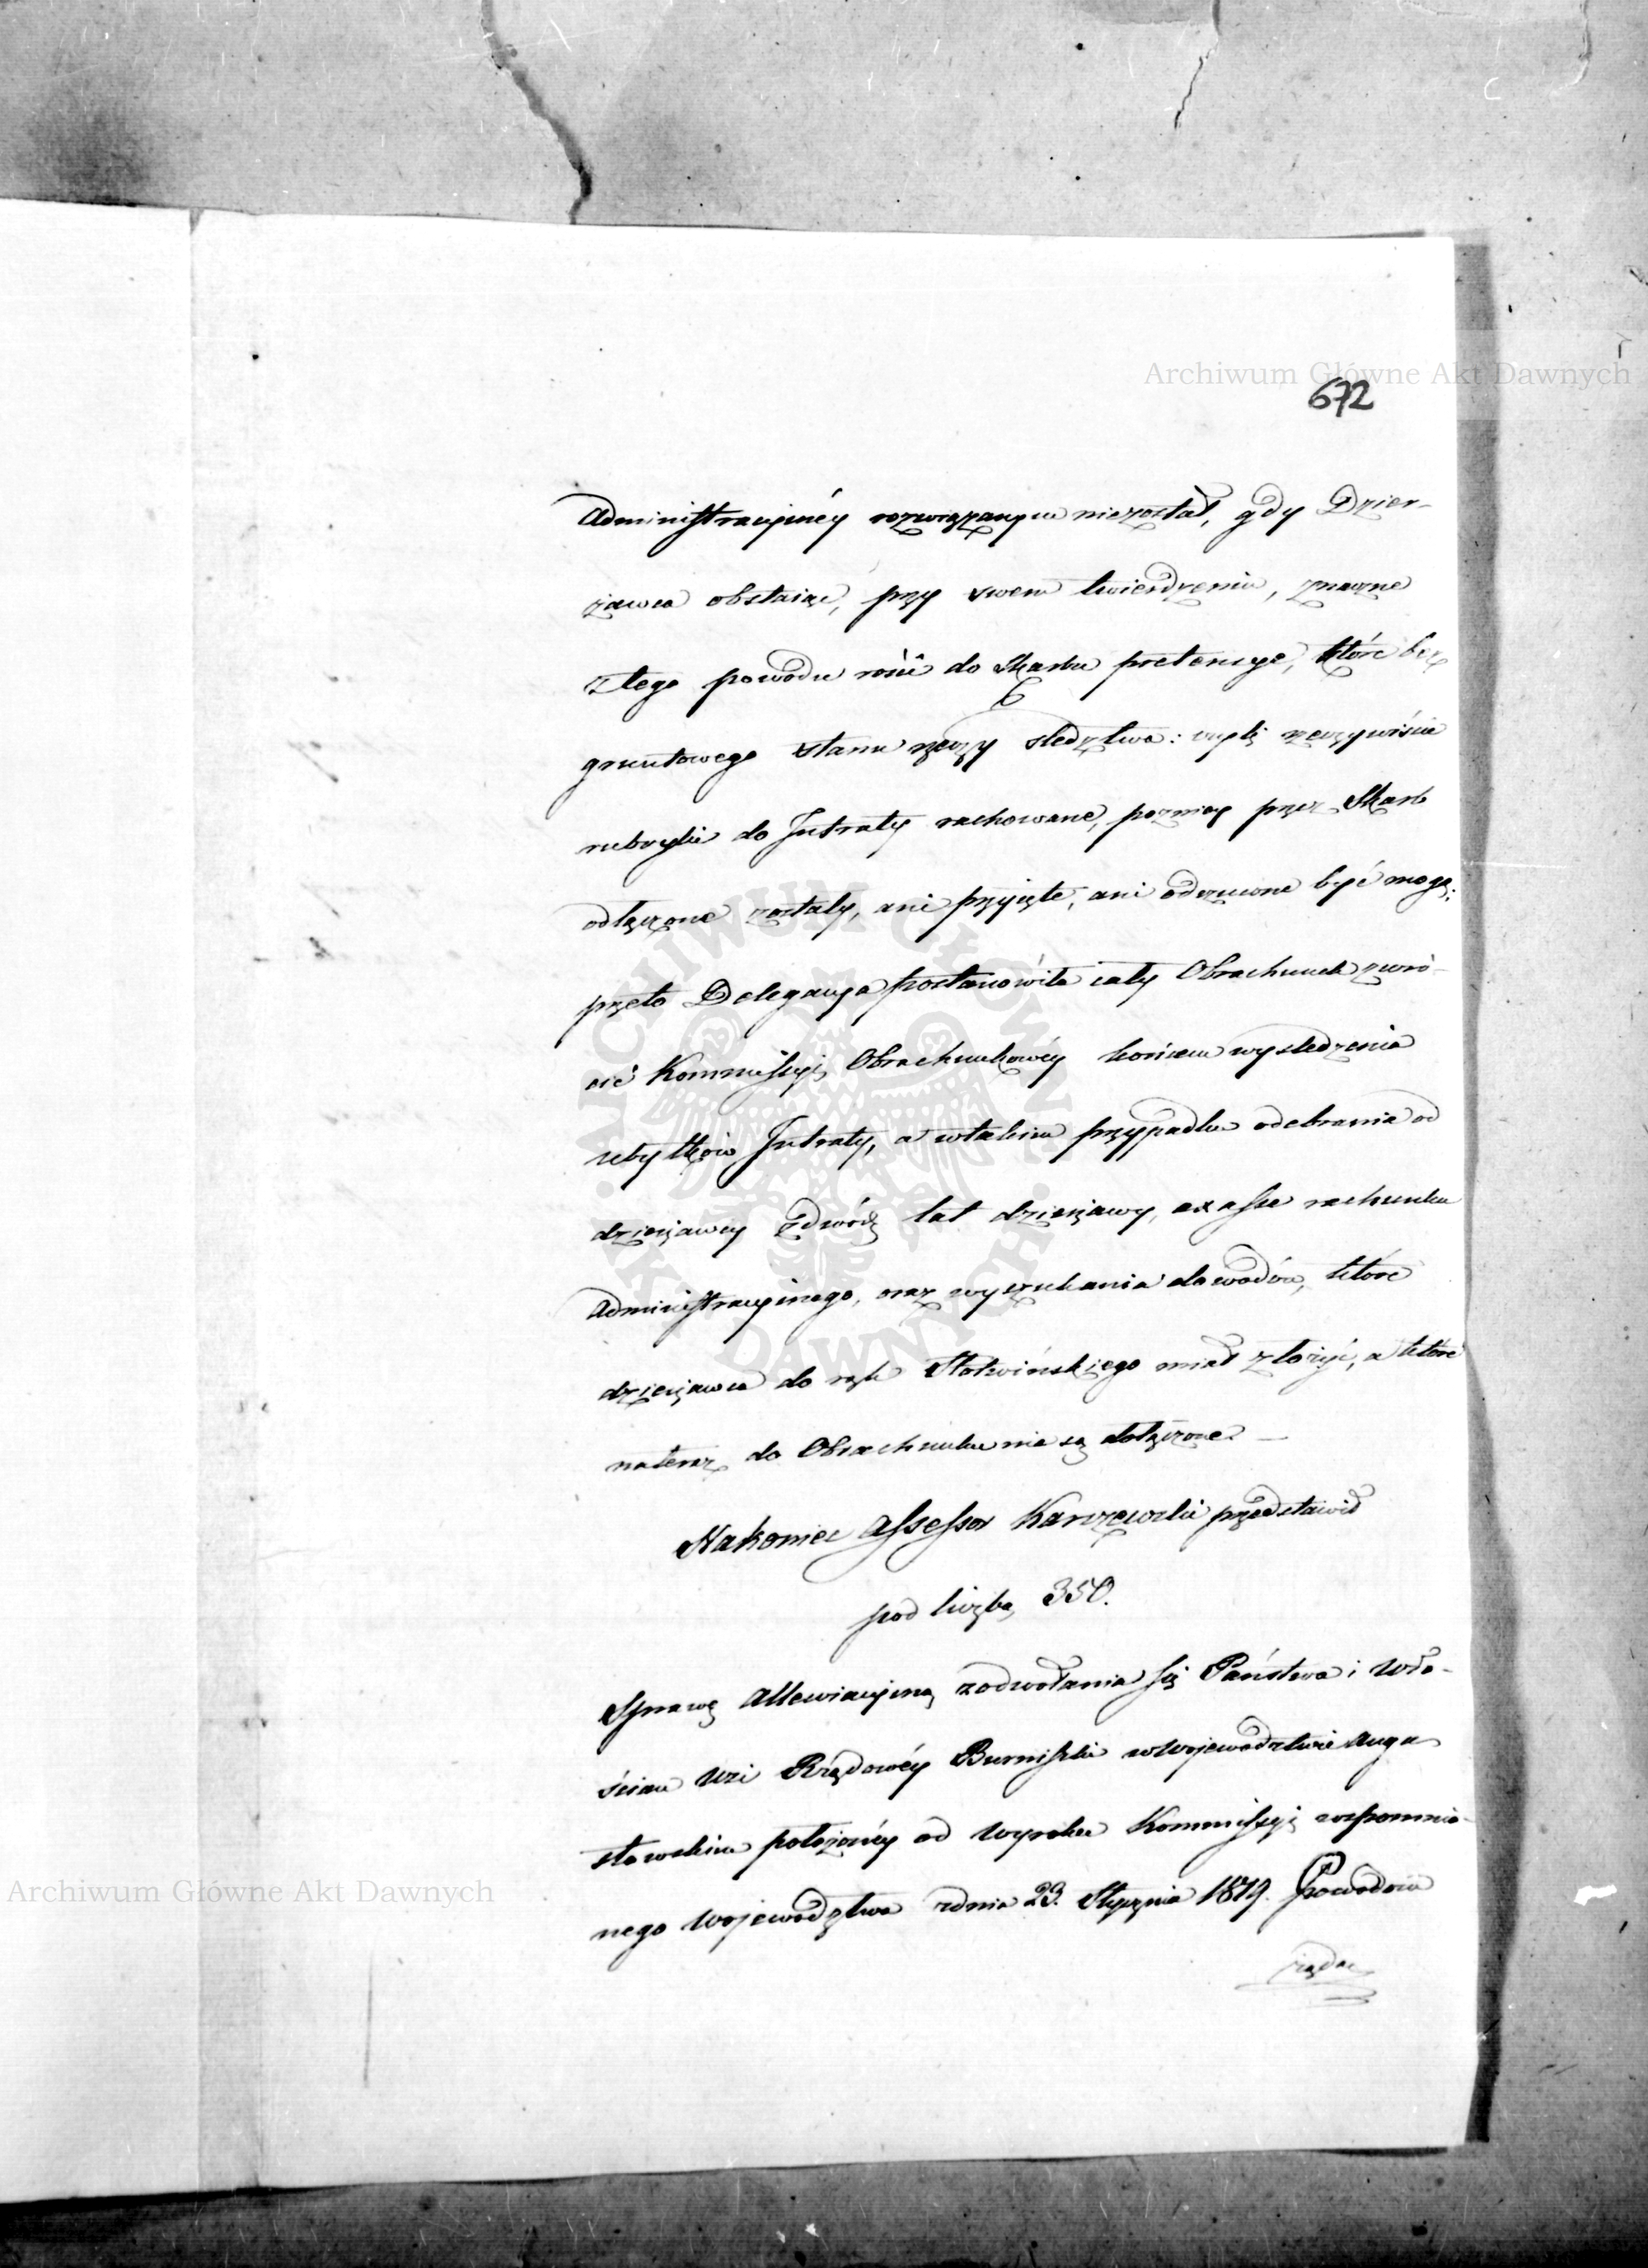 Archiwum Główne Akt Dawnych
672
Administracyinéy rozwiązanym niezostał, gdy Dzier-
żawca obstaiąc, przy swem twierdzeniu, znaczne
z tego powodu rości do Skarbu pretensye, które bez
gruntowego stanu rzeczy śledztwa: czyli rzeczywiście
rubryki do Intraty rachowane, pozniey przez Skarb
odłączone zostały, ani przyięte, ani odrzucone być mogą;
przeto Delegacya postanowiła cały Obrachunek zwró-
cić Kommissyi Obrachunkowéy końcem wyśledzenia
ubytków Intraty, a wtakim przypadku odebrania od
dzierżawcy z dwóch lat dzierżawy, ex asse rachunku
Administracyinego, oraz wyszukania dowodów, które
dzierżawca do rąk Słotwińskiego miał złożyć, a które
nateraz do Obrachunku nie są dołączone. —
Nakoniec Assessor Karczewski przedstawił
pod liczbą 350.
Sprawę Allewiacyiną z odwołania się Państwa i Wło-
ścian Wsi Rządowéy Burniszki w Województwie Augu-
stowskim położonéy od Wyroku Kommissyi wspomnio-
nego Województwa z dnia 23. Stycznia 1819. Powodów
żądać
Archiwum Główne Akt Dawnych
ARCHIWUM GŁÓWNE AKT DAWNYCH